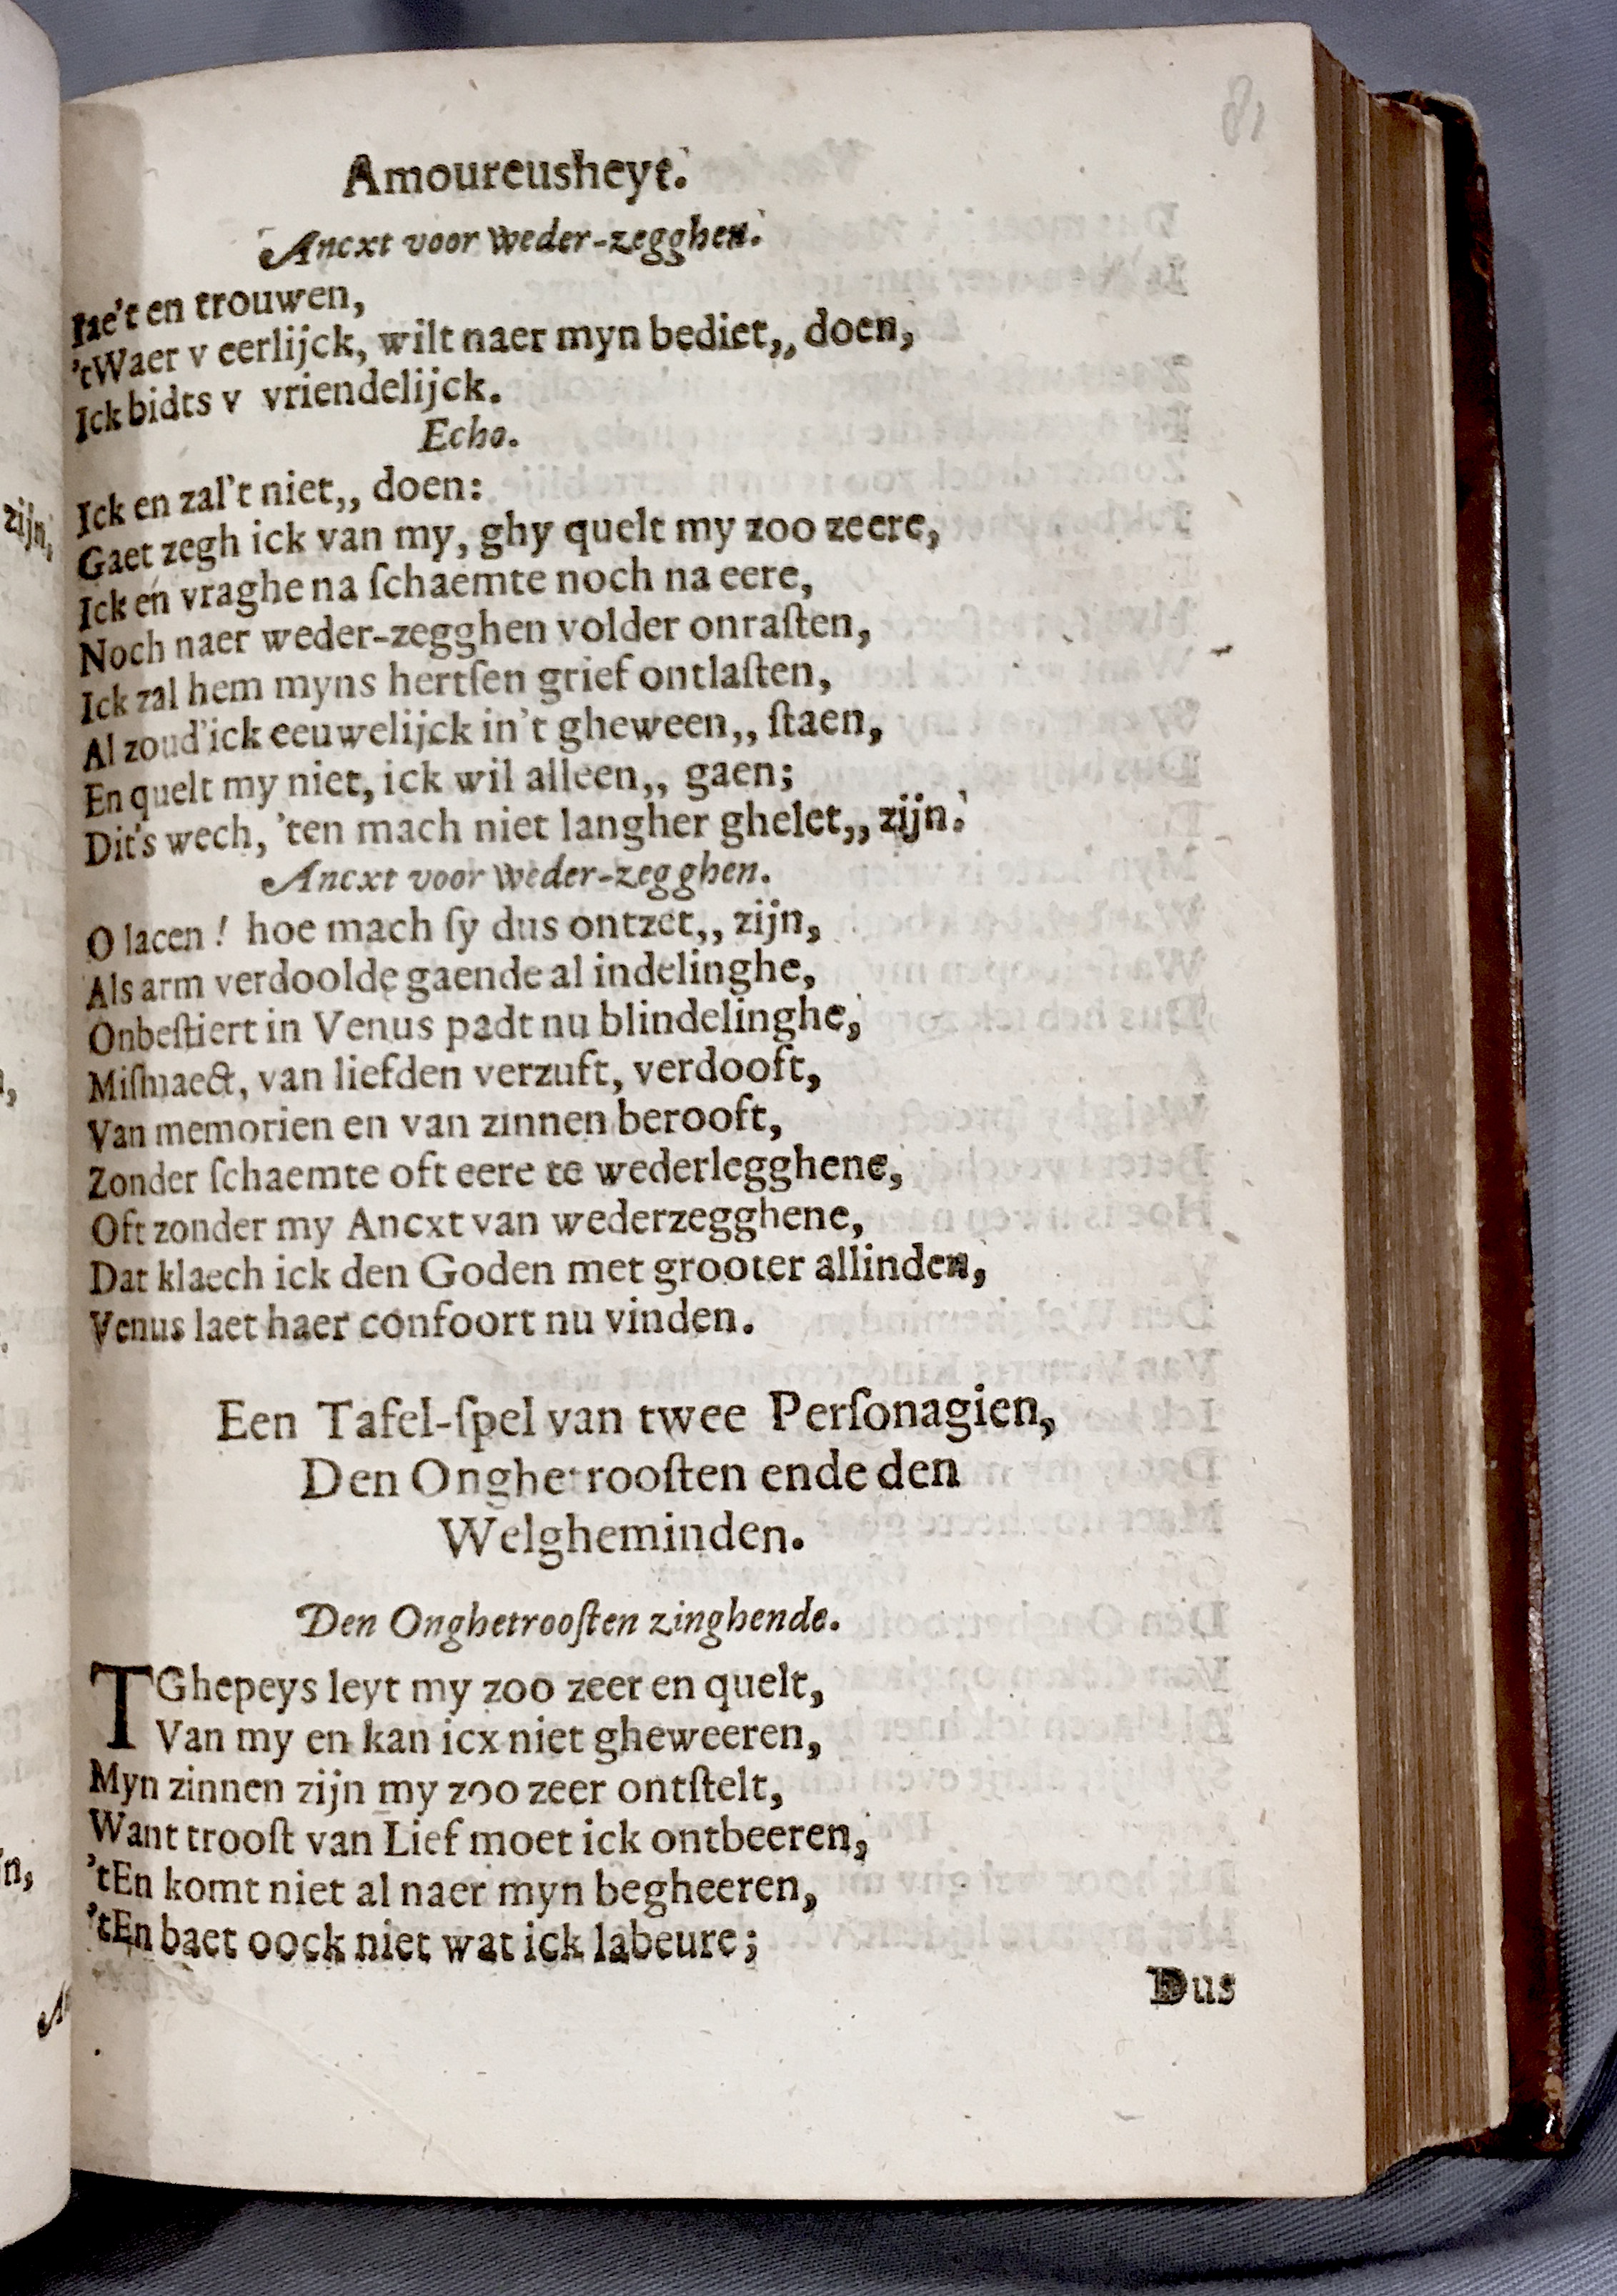 81
Amoureusheyt.
Ancxt voor weder-zegghen.
Iae't en trouwen,
'tWaer v eerlijck, wilt naer myn bediet,, doen,
Ick bidts v vriendelijck.
Echo.
Ick en zal't niet,, doen:
Gaet zegh ick van my, ghy quelt my zoo zeere,
Ick en vraghe na ſchaemte noch na eere,
Noch naer weder-zegghen volder onraſten,
Ick zal hem myns hertſen grief ontlaſten,
Al zoud'ick eeuwelijck in't gheween,, ſtaen,
En quelt my niet, ick wil alleen,, gaen;
Dit's wech, 'ten mach niet langher ghelet,, zijn.
Ancxt voor weder-zegghen.
O lacen! hoe mach ſy dus ontzet,, zijn,
Als arm verdoolde gaende al indelinghe,
Onbeſtiert in Venus padt nu blindelinghe,
Miſmaect, van liefden verzuft, verdooft,
Van memorien en van zinnen berooft,
Zonder ſchaemte oft eere te wederlegghene,
Oft zonder my Ancxt van wederzegghene,
Dat klaech ick den Goden met grooter allinden,
Venus laet haer confoort nu vinden.
Een Tafel-ſpel van twee Perſonagien,
Den Onghetrooſten ende den
Welgheminden.
Den Onghetrooſten zinghende.
TGhepeys leyt my zoo zeer en quelt,
Van my en kan icx niet gheweeren,
Myn zinnen zijn my zoo zeer ontſtelt,
Want trooſt van Lief moet ick ontbeeren,
'tEn komt niet al naer myn begheeren,
'tEn baet oock niet wat ick labeure;
Dus
zijn,